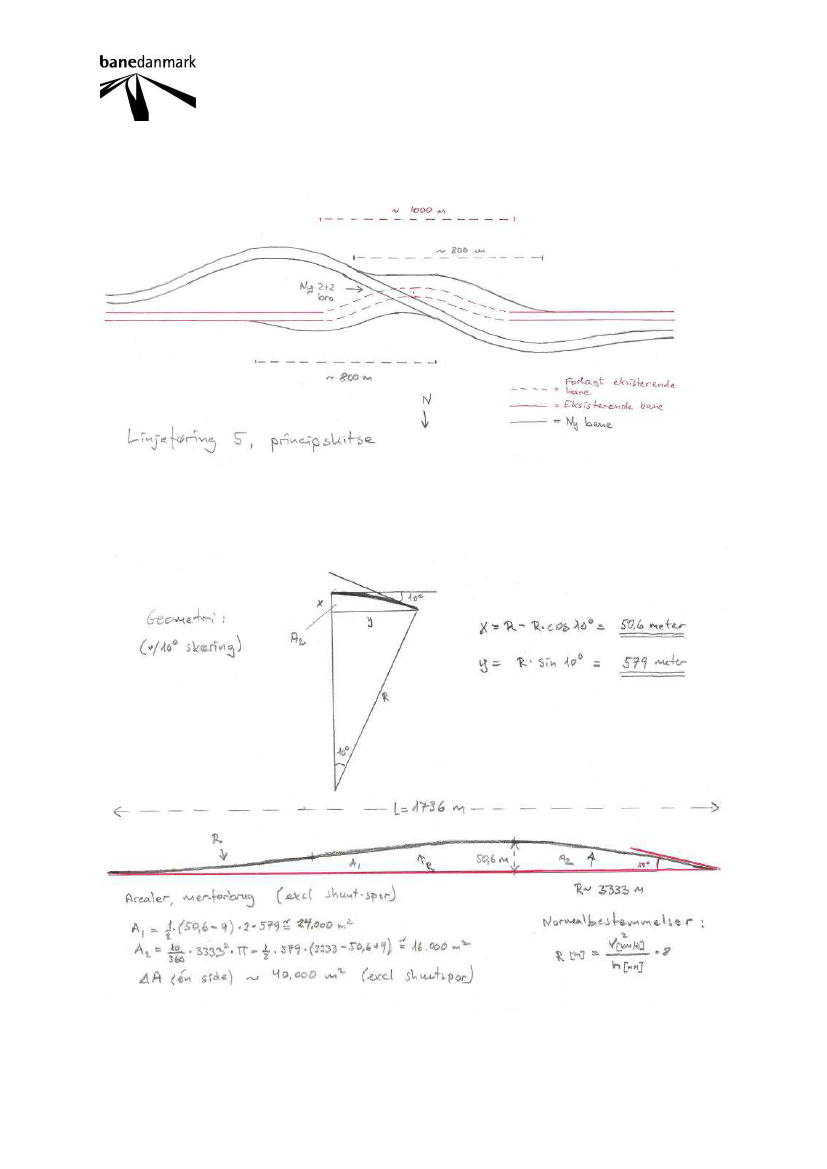 banedanmark
~ 1000 m
~ 800 m
Ny 2+2
bro
~ 800 m
N
= Forlagt eksisterende
bane
= Eksisterende bane
= Ny bane
Linjeføring 5, principskitse
Geometri:
(v/10° skæring)
x
10°
y
A2
R
10°
x = R - R·cos 10° = 50,6 meter
y = R· sin 10° = 579 meter
L = 1736 m
R
A1
R
50,6 m
A2
10°
R ~ 3333 m
Arealer, merforbrug (excl shunt-spor)
A1 = 1/2 · (50,6 - 9) · 2 · 579 ≅ 24.000 m²
A2 = 10/360 · 3333² · π - 1/2 · 579 · (3333 - 50,6 + 9) ≅ 16.000 m²
ΔA (én side) ~ 40,000 m² (excl shuntspor)
Normalbestemmelser:
R [m] = V² [km/h] / h [mm] · 8